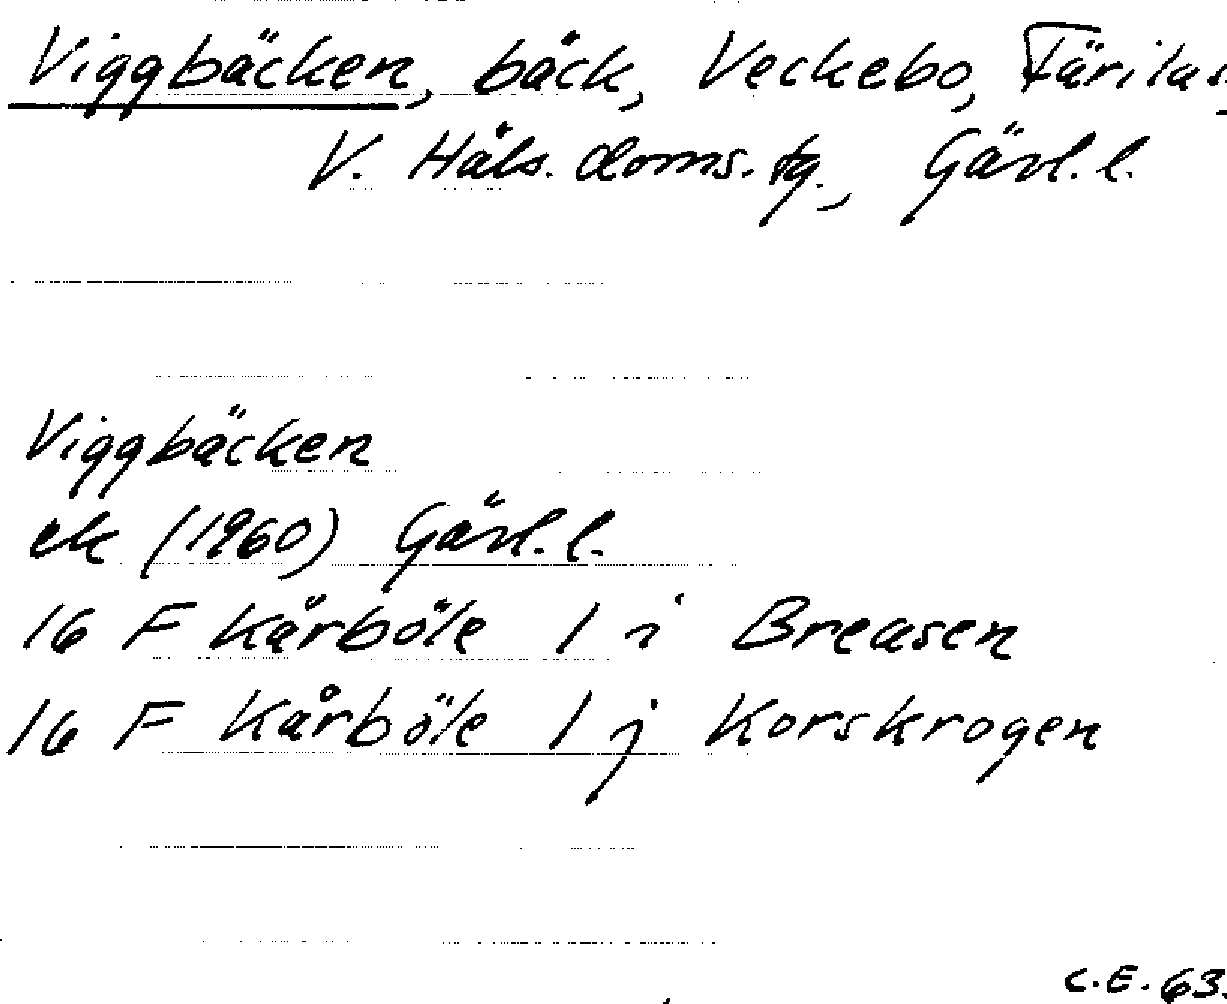 Viggbäcken, bäck, Veckebo, Färilas
V. Häls. doms. tg., Gävl. l.
Viggbäcken
ek (1960) Gävl. l.
16 F Kårböle 1 i Breasen
16 F Kårböle 1 j Korskrogen
C.E. 63.